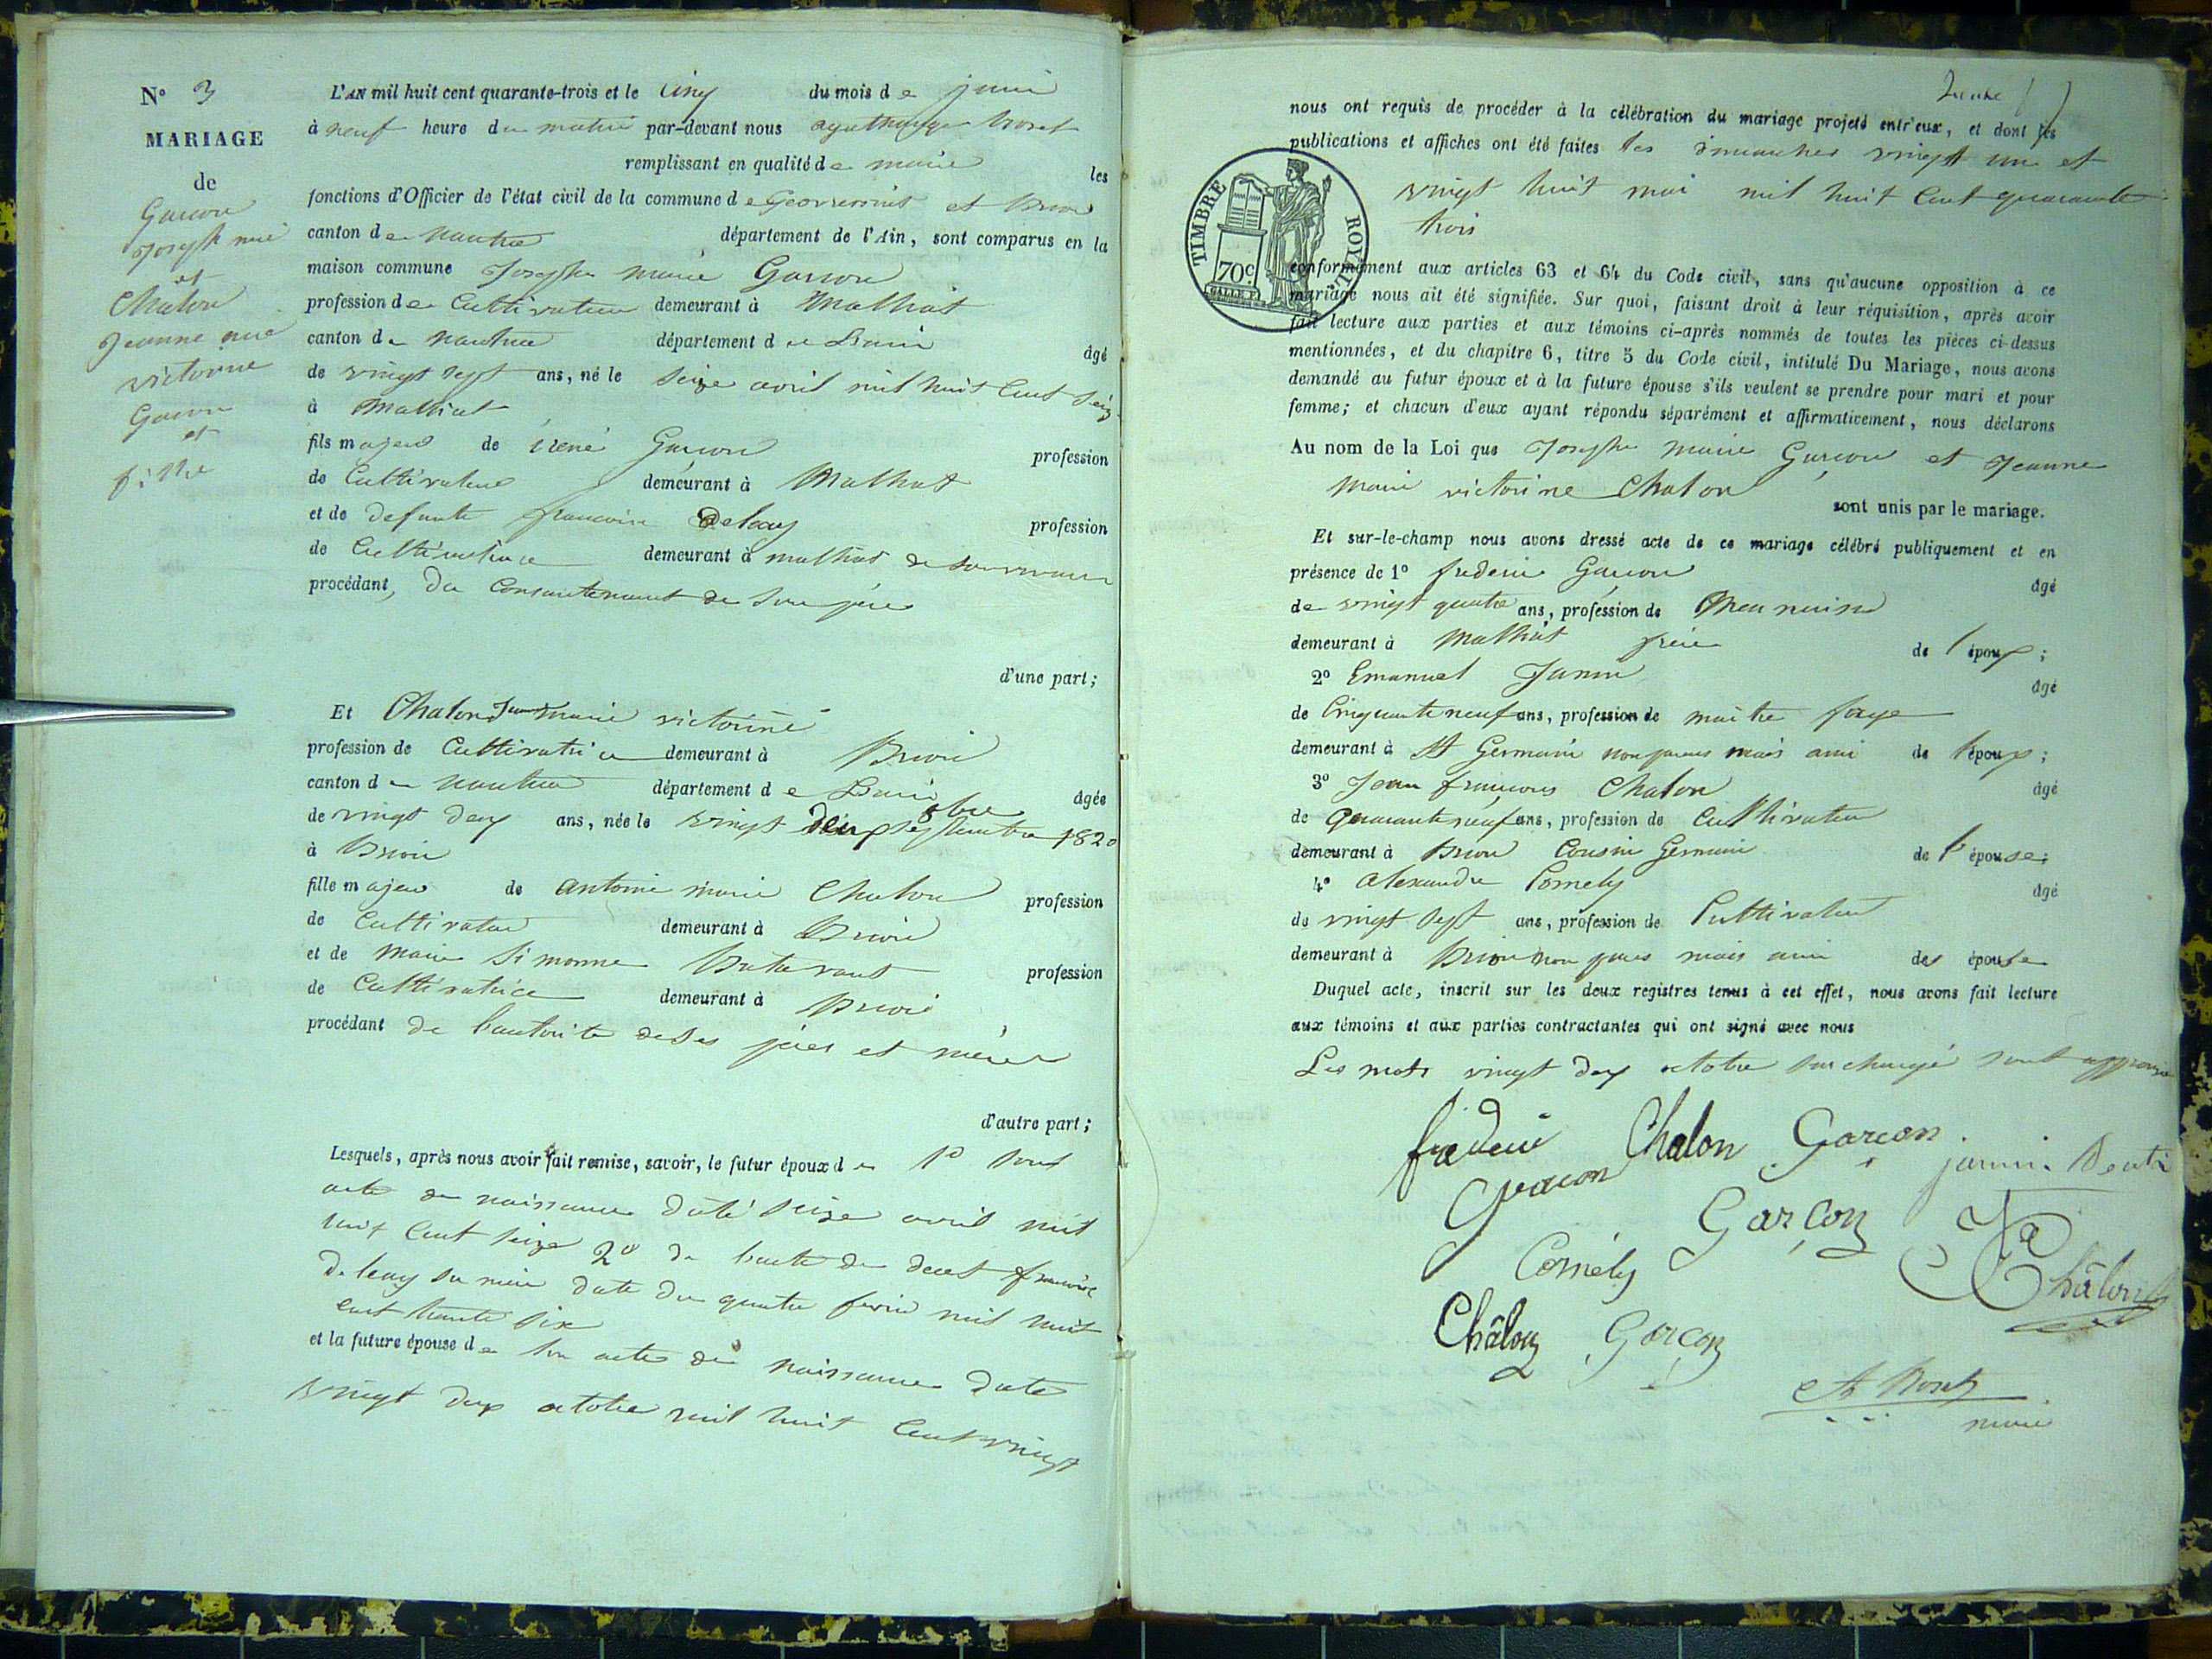 N° 3
MARIAGE
de
Garcon
Joseph marie
et
Chalon
Jeanne marie
victorine
Garcon
et
fille
L'AN mil huit cent quarante-trois et le cinq du mois de juin
à neuf heure du matin par-devant nous agathange Broset
remplissant en qualité de maire les
fonctions d'Officier de l'état civil de la commune de Geovreissiat et Brion
canton de nantua département de l'Ain, sont comparus en la
maison commune Joseph marie Garcon
profession de Cultivateur demeurant à Malhiat
canton de nantua département de L'ain âgé
de vingt sept ans, né le seize avril mil huit cent seize
à Malhiat
fils majeur de iréné Garcon profession
de Cultivateur demeurant à Malhiat
et de defunte francoise Deleay profession
de Cultivatrice demeurant à malhiat de son vivant
procédant, du Consentement de son père
d'une part;
Et Chalon Jeanne marie victorine
profession de Cultivatrice demeurant à Brion
canton de nantua département de L'ain âgée
de vingt deux ans, née le vingt deux octobre 1820
à Brion
fille majeur de antoine marie Chalon profession
de Cultivateur demeurant à Brion
et de Marie Simonne profession
de Cultivatrice demeurant à Brion
procédant de l'autorité de ses père et mère
d'autre part;
Lesquels, après nous avoir fait remise, savoir, le futur époux de 1° son
acte de naissance daté seize avril mil
huit cent seize 2° de l'acte de décès francoise
Deleay sa mère daté du quatre fevrier mil huit
cent trente six
et la future épouse de son acte de naissance daté
vingt deux octobre mil huit cent vingt
nous ont requis de procéder à la célébration du mariage projeté entr'eux, et dont les
publications et affiches ont été faites les dimanches vingt un et
vingt huit mai mil huit cent quarante
trois
TIMBRE ROYAL
70c
conformément aux articles 63 et 64 du Code civil, sans qu'aucune opposition à ce
mariage nous ait été signifiée. Sur quoi, faisant droit à leur réquisition, après avoir
fait lecture aux parties et aux témoins ci-après nommés de toutes les pièces ci-dessus
mentionnées, et du chapitre 6, titre 5 du Code civil, intitulé Du Mariage, nous avons
demandé au futur époux et à la future épouse s'ils veulent se prendre pour mari et pour
femme; et chacun d'eux ayant répondu séparément et affirmativement, nous déclarons
Au nom de la Loi que Joseph Marie Garçon et Jeanne
Marie victorine Chalon
sont unis par le mariage.
Et sur-le-champ nous avons dressé acte de ce mariage célébré publiquement et en
présence de 1° frederic Garcon âgé
de vingt quatre ans, profession de Meunier
demeurant à Malhiat frère de l'époux;
2° Emanuel Janin âgé
de Cinquante neuf ans, profession de maitre forge
demeurant à St Germain non parent mais ami de l'époux;
3° Jean francois Chalon âgé
de quarante neuf ans, profession de Cultivateur
demeurant à Brion Cousin Germain de l'épouse;
4° Alexandre Comely âgé
de vingt sept ans, profession de Cultivateur
demeurant à Brion non parent mais ami des épouse
Duquel acte, inscrit sur les deux registres tenus à cet effet, nous avons fait lecture
aux témoins et aux parties contractantes qui ont signé avec nous
Les mots vingt deux octobre surchargé sont approuvé
frederic Garcon Chalon Garcon. janin.
Comély Garçon
Châlon
Châlon Garcon
Broset
maire